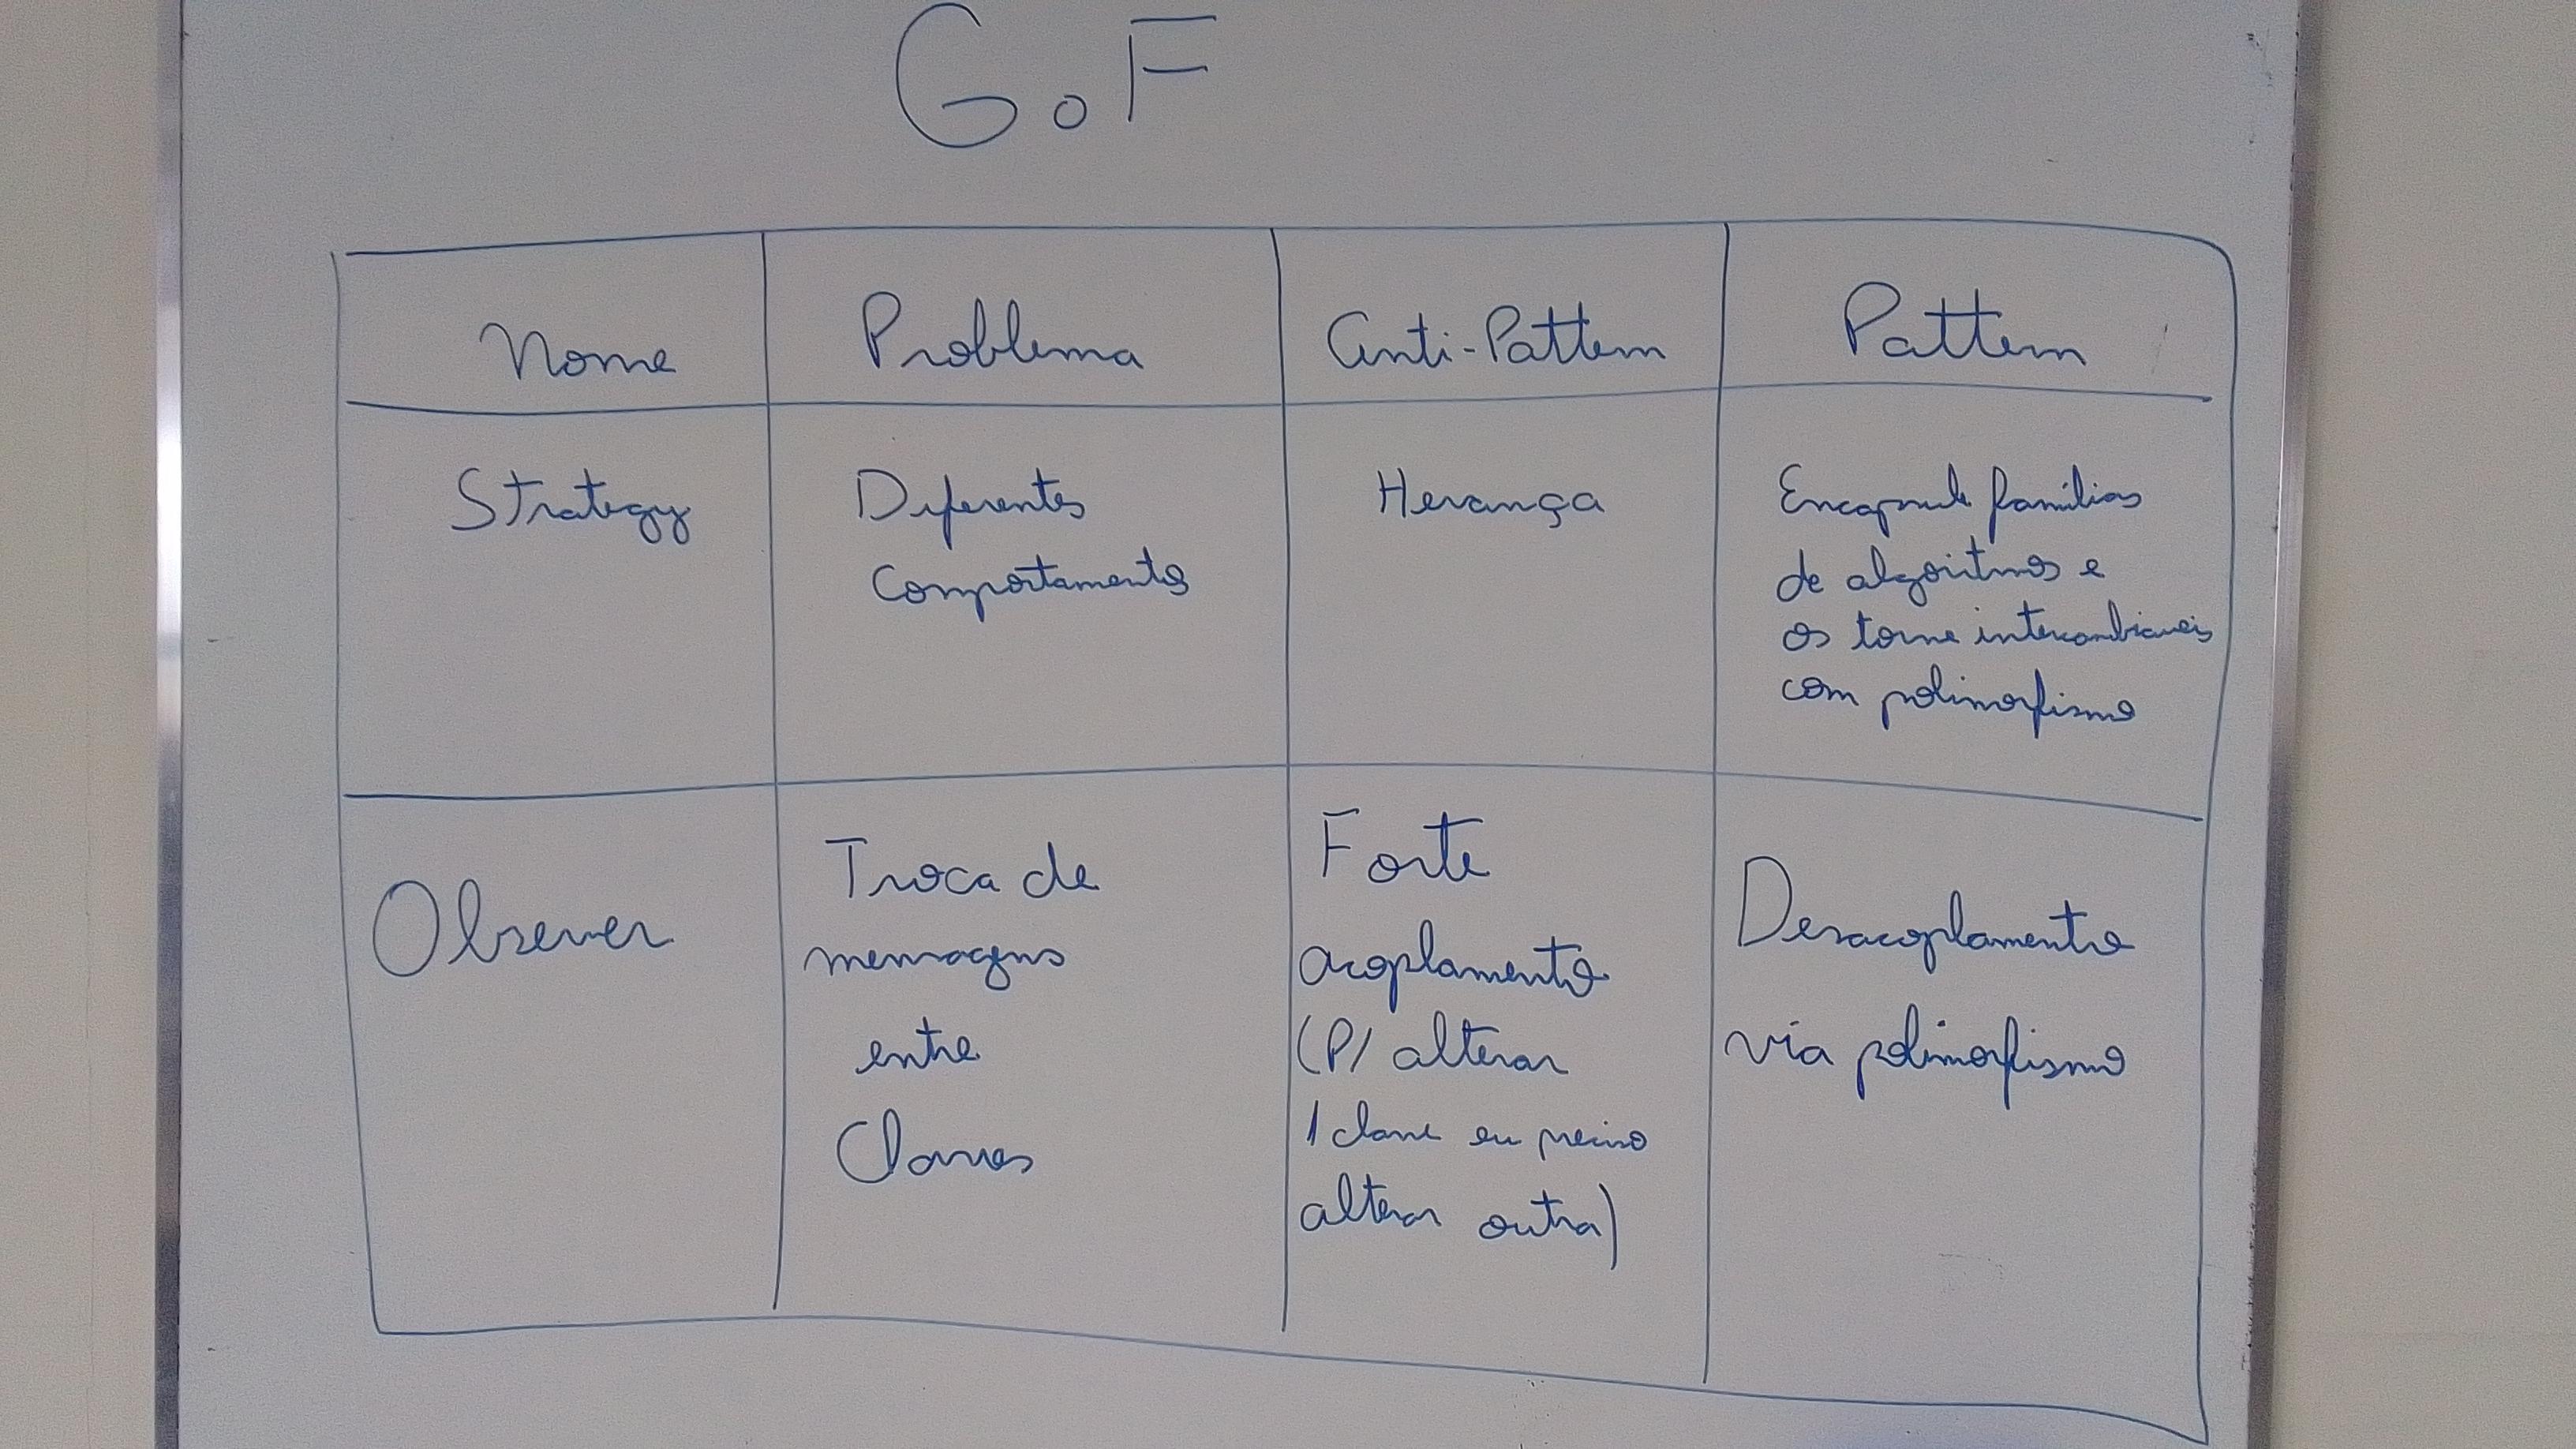 GoF
Nome
Problema
Anti-Pattern
Pattern
Strategy
Diferentes
Comportamentos
Herança
Encapsule famílias
de algoritmos e
os torne intercambiaveis
com polimorfismo
Observer
Troca de
mensagens
entre
Classes
Forte
acoplamento
(P/ alterar
1 classe eu preciso
alterar outra)
Desacoplamento
via polimorfismo